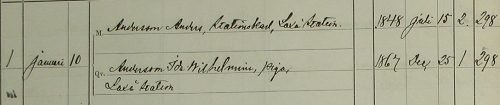 M. Andersson Anders, Stationskarl, Laxå station. 1848 juli 15 2. 298
1 januari 10
Qv. Andersson Ida Wilhelmina, piga, 1867 Dec. 25 1 298
Laxå station